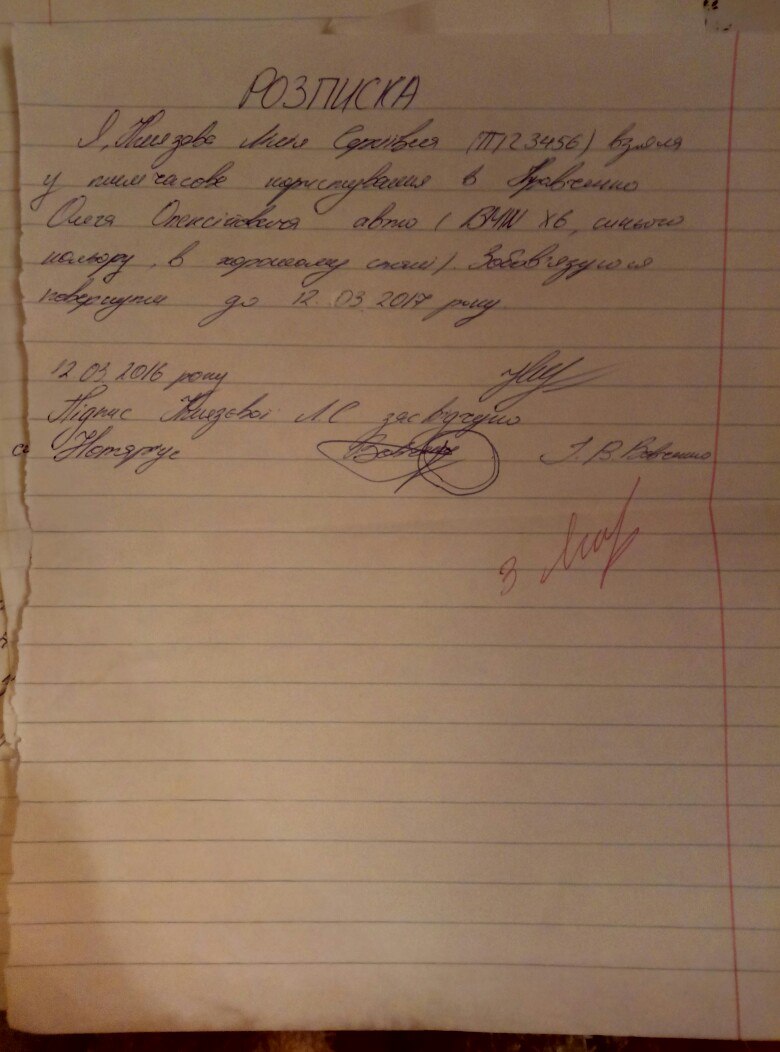 РОЗПИСКА
Я, Князева Лілія Сергіївна (ТТ123456) взяла
у тимчасове користування в Кравченко
Олега Олексійовича авто (БМW X6, синього
кольору, в хорошому стані). Зобов'язуюся
повернути до 12.03.2017 року.
12.03.2016 року
Підпис Князевої Л.С засвідчую
Нотаріус І. В. Вовченко